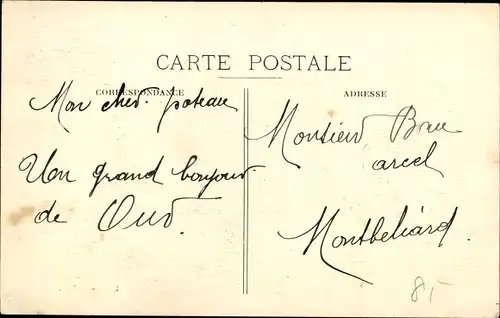 CARTE POSTALE
CORRESPONDANCE
Mon cher poteau
Un grand bonjour
de
ADRESSE
Monsieur
Montbeliard.